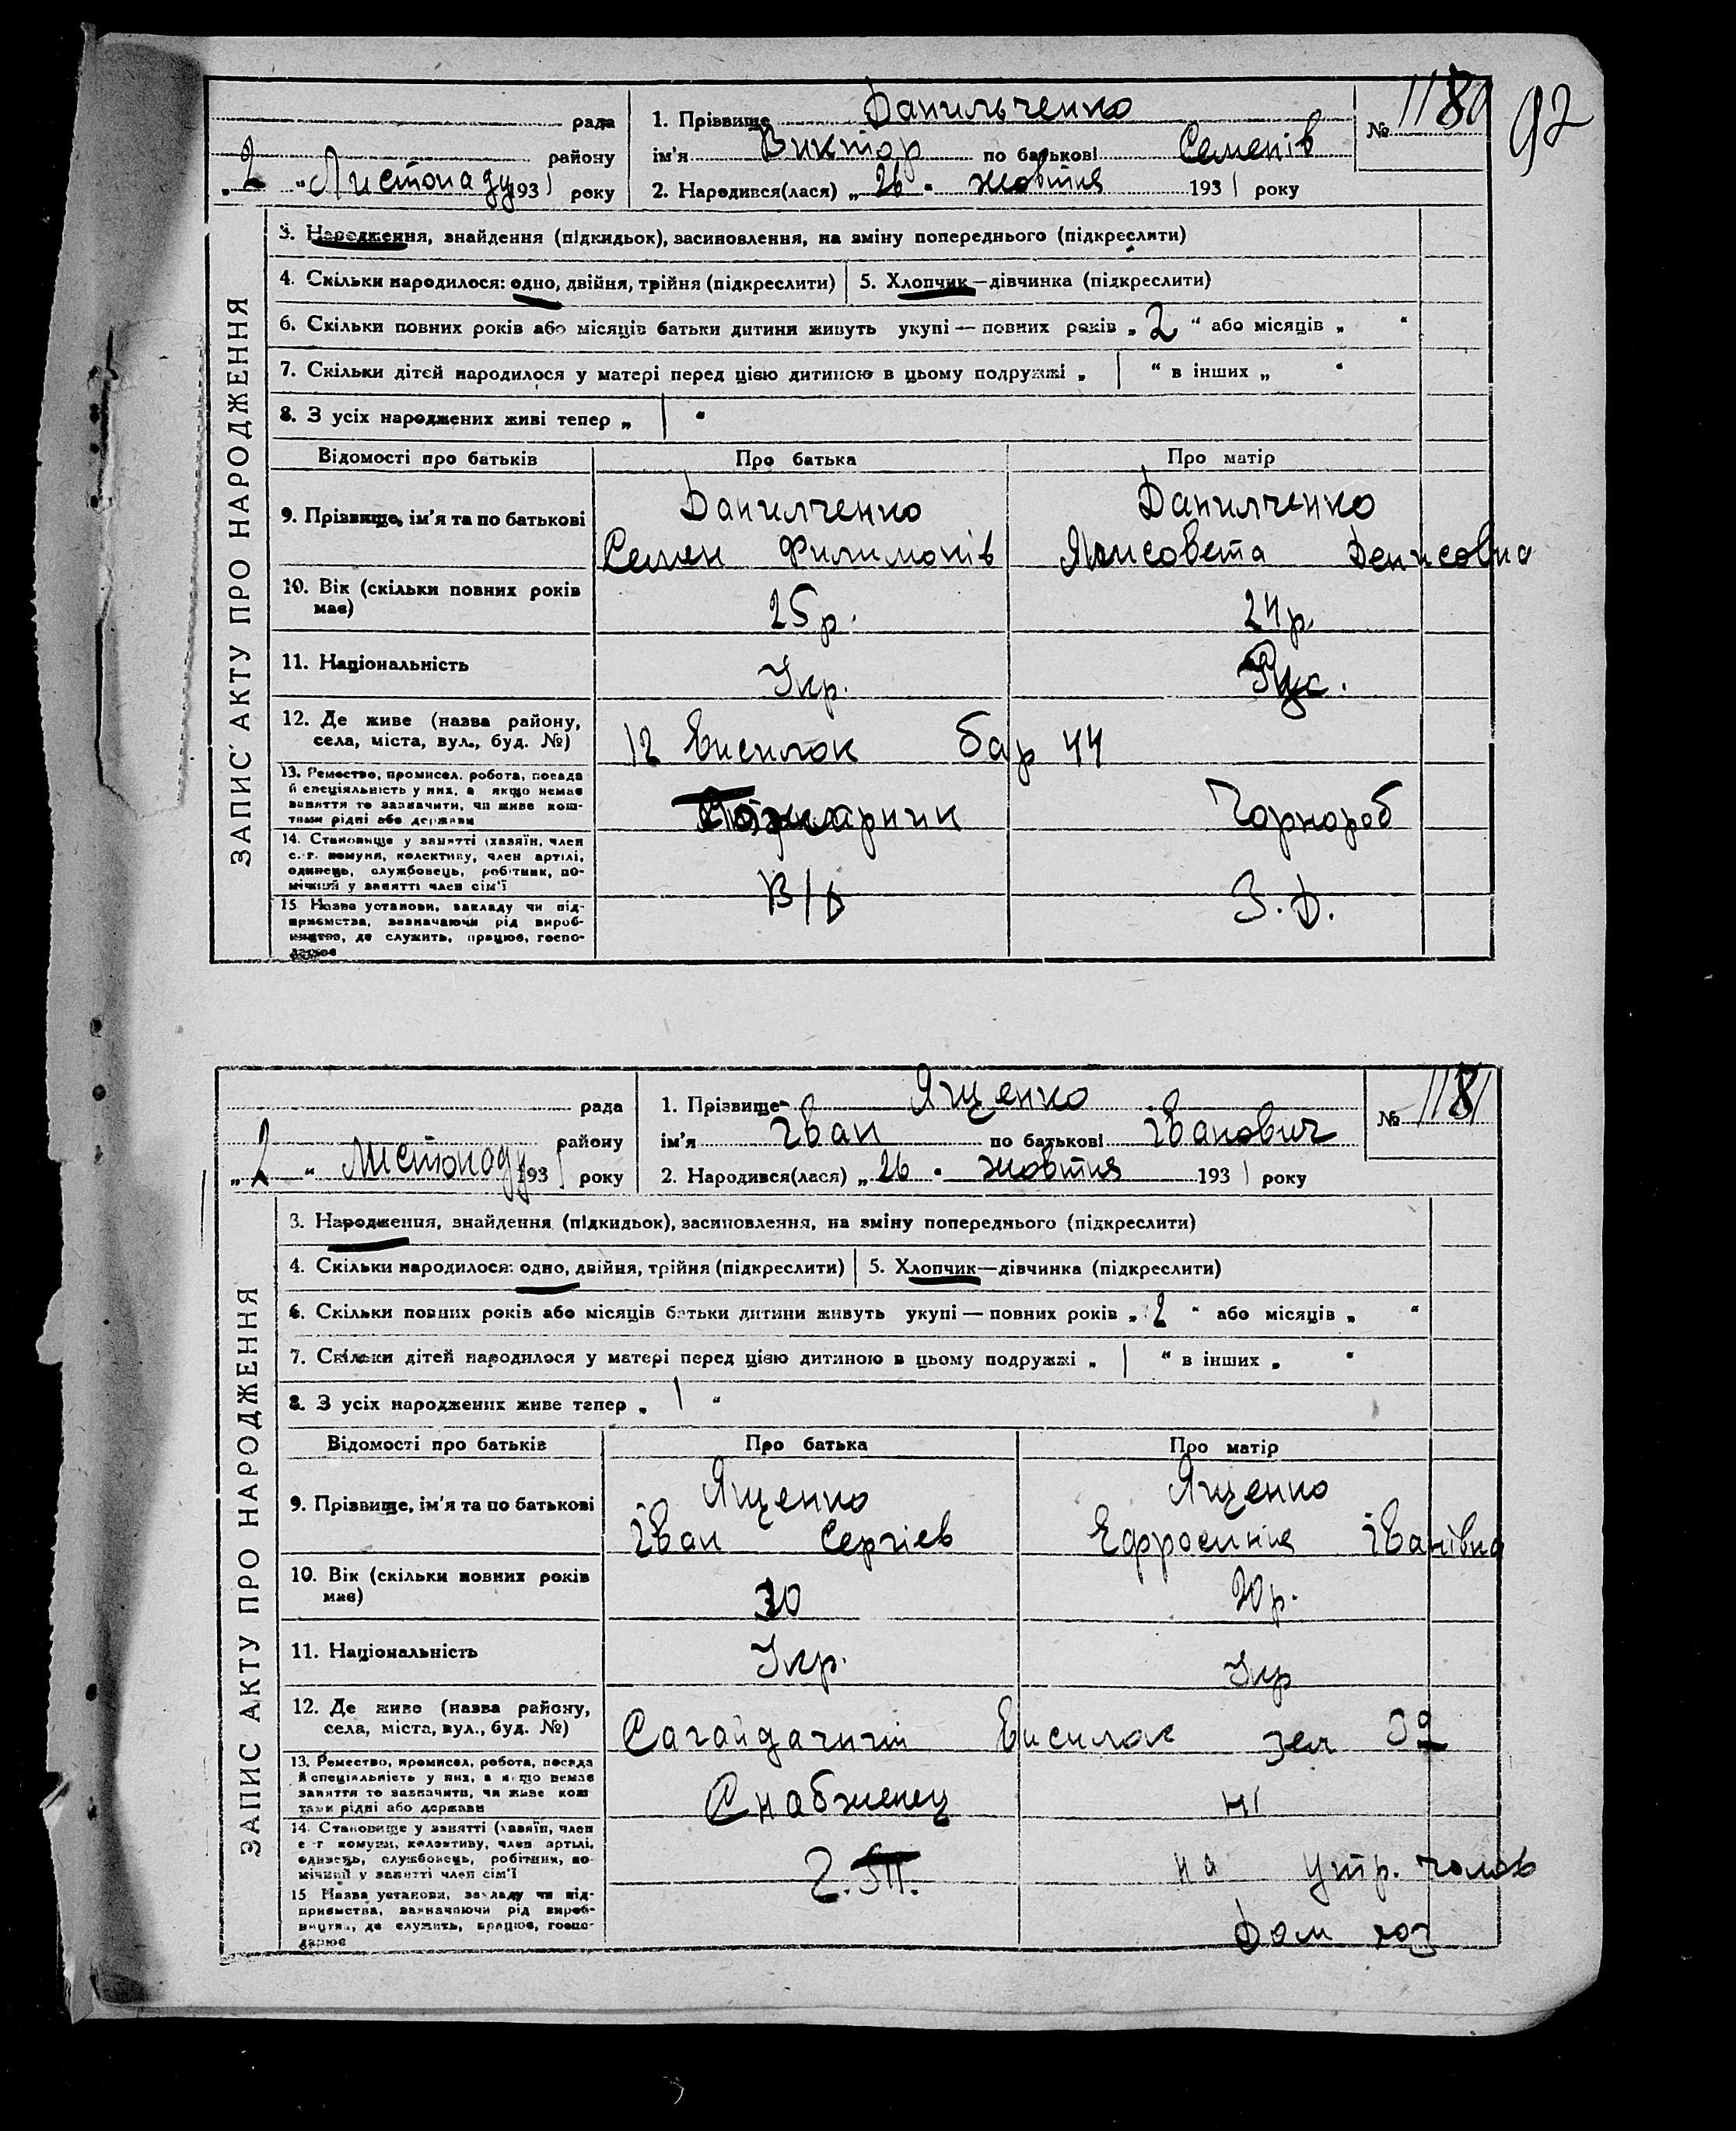 92
рада
1. Прізвище Данильченко
№ 1180
району
ім'я Виктор по батькові Семенів
„ 2 " Листопаду 1931 року
2. Народився(лася) „ 26 " жовтня 1931 року
ЗАПИС АКТУ ПРО НАРОДЖЕННЯ
3. Народження, знайдення (підкидьок), засиновлення, на зміну попереднього (підкреслити)
4. Скільки народилося: одно, двійня, трійня (підкреслити) 5. Хлопчик—дівчинка (підкреслити)
6. Скільки повних років або місяців батьки дитини живуть укупі — повних років „ 2 " або місяців „ "
7. Скільки дітей народилося у матері перед цією дитиною в цьому подружжі „ 1 " в інших „ "
8. З усіх народжених живі тепер „ 1 "
Відомості про батьків Про батька Про матір
9. Прізвище, ім'я та по батькові
Данилченко Данилченко
Семен Филимонів Денисовна
10. Вік (скільки повних років має) 25 р. 24 р.
11. Національність Укр. Рус.
12. Де живе (назва району, села, міста, вул., буд. №)
12 Висилок бар 44
13. Ремество, промисел, робота, посада й спеціяльність у них, а якщо немає заняття то зазначити, чи живе коштами рідні або держави
Чорнороб
14. Становище у занятті (хазяїн, член с.-г. комуни, колективу, член артілі, одинець, службовець, робітник, помічний у занятті член сім'ї
В/Д З.Д.
15 Назва установи, закладу чи підприємства, зазначаючи рід виробництва, де служить, працює, господарює
рада
1. Прізвище Ященко
№ 1181
району
ім'я Іван по батькові Іванович
„ 2 " Листопаду 1931 року
2. Народився(лася) „ 26 " жовтня 1931 року
ЗАПИС АКТУ ПРО НАРОДЖЕННЯ
3. Народження, знайдення (підкидьок), засиновлення, на зміну попереднього (підкреслити)
4. Скільки народилося: одно, двійня, трійня (підкреслити) 5. Хлопчик—дівчинка (підкреслити)
6. Скільки повних років або місяців батьки дитини живуть укупі — повних років „ 2 " або місяців „ "
7. Скільки дітей народилося у матері перед цією дитиною в цьому подружжі „ 1 " в інших „ "
8. З усіх народжених живе тепер „ 1 "
Відомості про батьків Про батька Про матір
9. Прізвище, ім'я та по батькові
Ященко Ященко
Іван Сергієв Ефросинія Іванівна
10. Вік (скільки повних років має) 30 20 р.
11. Національність Укр. Укр
12. Де живе (назва району, села, міста, вул., буд. №)
Висилок зел 39
13. Ремество, промисел, робота, посада й спеціяльність у них, а якщо немає заняття то зазначити, чи живе коштами рідні або держави
Снабженец
14. Становище у занятті (хазяїн, член с.-г. комуни, колективу, член артілі, одинець, службовець, робітник, помічний у занятті член сім'ї
на утр. чолов
15 Назва установи, закладу чи підприємства, зазначаючи рід виробництва, де служить, працює, господарює
Дом хоз